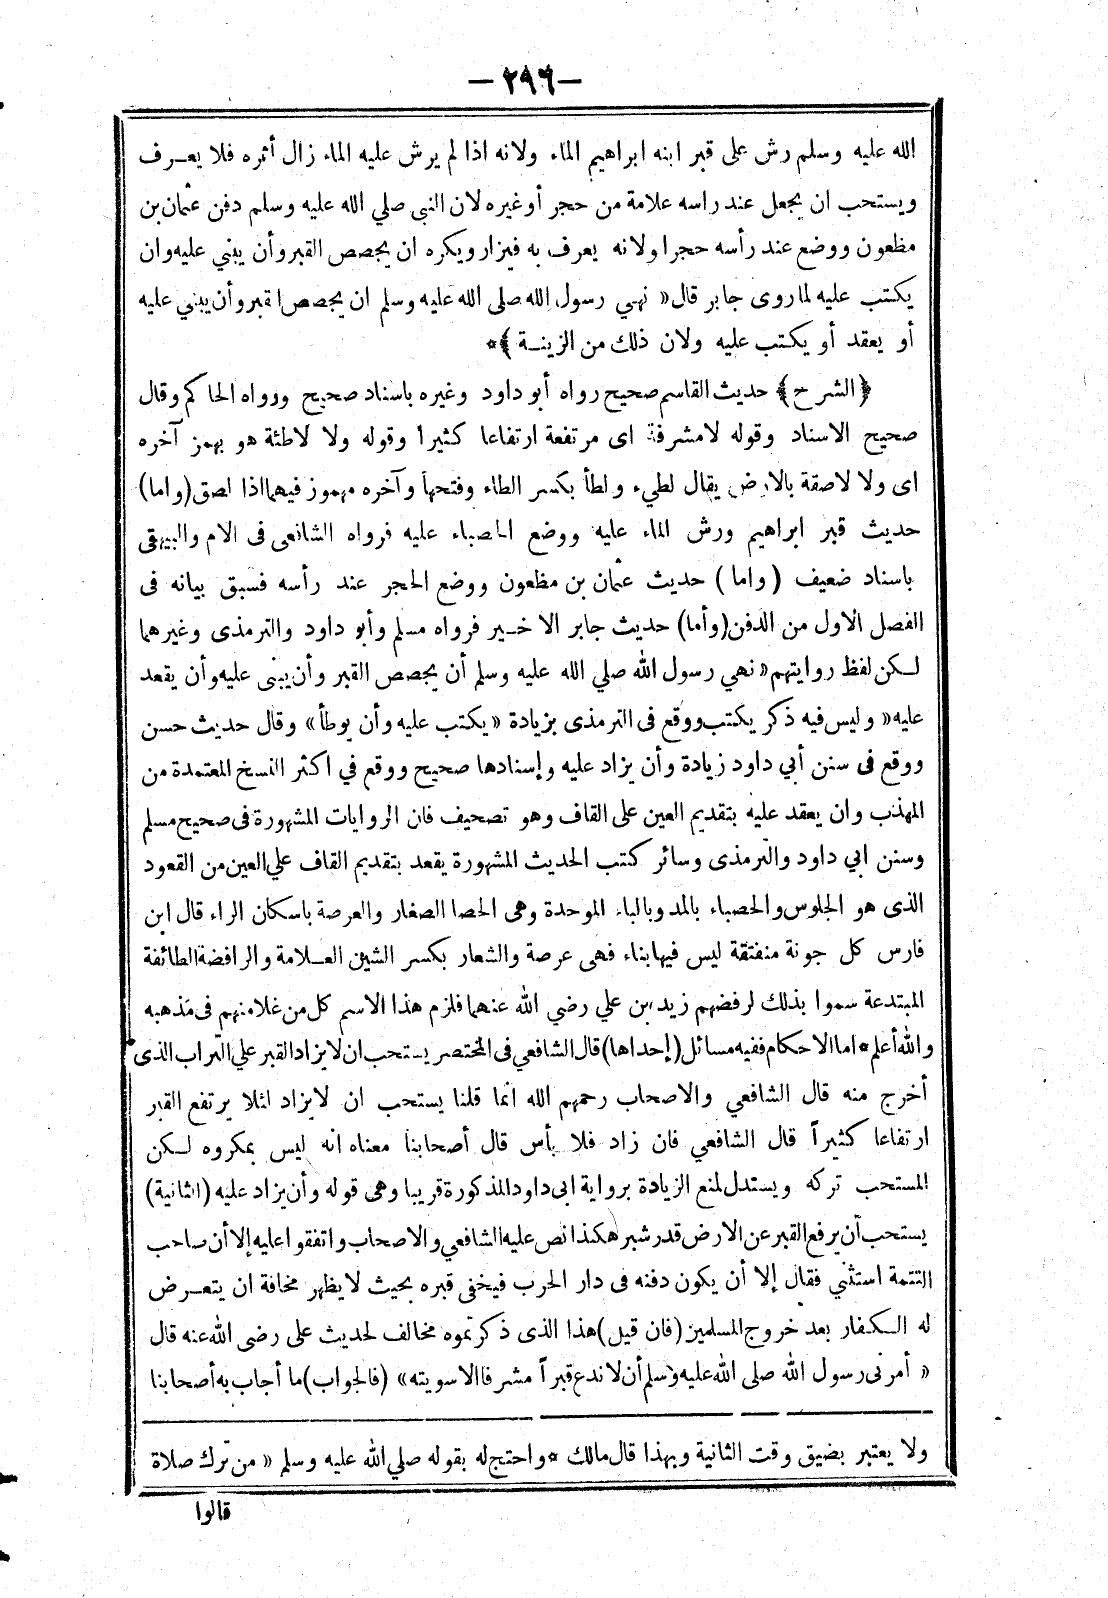 — ٢٩٦ —
الله عليه وسلم رش على قبر ابنه ابراهيم الماء ولانه اذا لم يرش عليه الماء زال أثره فلا يعـرف
ويستحب ان يجعل عند راسه علامة من حجر أو غيره لان النبي صلي الله عليه وسلم دفن عثمان بن
مظعون ووضع عند رأسه حجرا ولانه يعرف به فيزار ويكره ان يجصص القبر وأن يبني عليه وان
يكتب عليه لما روى جابر قال « نهي رسول الله صلى الله عليه وسلم ان يجصص القبر وأن يبني عليه
أو يعقد أو يكتب عليه ولان ذلك من الزينـة ﴾*
﴿الشرح﴾ حديث القاسم صحيح رواه أبو داود وغيره باسناد صحيح ورواه الحاكم وقال
صحيح الاسناد وقوله لا مشرفة اى مرتفعة ارتفاعا كثيرا وقوله ولا لاطئة هو بهمز آخره
اى ولا لاصقة بالارض يقال لطيء ولطأ بكسر الطاء وفتحها وآخره مهموز فيهما اذا لصق (واما)
حديث قبر ابراهيم ورش الماء عليه ووضع الحصباء عليه فرواه الشافعى فى الام والبيهقى
باسناد ضعيف (واما) حديث عثمان بن مظعون ووضع الحجر عند رأسه فسبق بيانه فى
الفصل الاول من الدفن (وأما) حديث جابر الاخـير فرواه مسلم وأبو داود والترمذى وغيرهما
لـكن لفظ روايتهم « نهي رسول الله صلي الله عليه وسلم أن يجصص القبر وأن يبنى عليه وأن يقعد
عليه « وليس فيه ذكر يكتب ووقع فى الترمذى بزيادة « يكتب عليه وأن يوطأ » وقال حديث حسن
ووقع فى سنن أبي داود زيادة وأن يزاد عليه وإسنادها صحيح ووقع في اكثر النسخ المعتمدة من
المهذب وان يعقد عليه بتقديم العين على القاف وهو تصحيف فان الروايات المشهورة فى صحيح مسلم
وسنن ابي داود والترمذى وسائر كتب الحديث المشهورة يقعد بتقديم القاف علي العين من القعود
الذى هو الجلوس والحصباء بالمد وبالباء الموحدة وهى الحصا الصغار والعرصة باسكان الراء قال ابن
فارس كل جوبة منفتقة ليس فيها بناء فهى عرصة والشعار بكسر الشين العـلامة والرافضة الطائفة
المبتدعة سموا بذلك لرفضهم زيد بن علي رضي الله عنهما فلزم هذا الاسم كل من غلا منهم فى مذهبه
والله أعلم * اما الاحكام ففيه مسائل (إحداها) قال الشافعي فى المختصر يستحب ان لا يزاد القبر علي التراب الذى
أخرج منه قال الشافعي والاصحاب رحمهم الله انما قلنا يستحب ان لا يزاد لئلا يرتفع القبر
ارتفاعا كثيراً قال الشافعي فان زاد فلا بأس قال أصحابنا معناه انه ليس بمكروه لـكن
المستحب تركه ويستدل لمنع الزيادة برواية ابى داود المذكورة قريبا وهى قوله وأن يزاد عليه (الثانية)
يستحب أن يرفع القبر عن الارض قدر شبر هكذا نص عليه الشافعي والاصحاب واتفقوا عليه إلا أن صاحب
التتمة استثني فقال إلا أن يكون دفنه فى دار الحرب فيخفى قبره بحيث لا يظهر مخافة ان يتعـرض
له الـكفار بعد خروج المسلمين (فان قيل) هذا الذى ذكرتموه مخالف لحديث على رضى الله عنه قال
« أمرنى رسول الله صلى الله عليه وسلم أن لا ندع قبراً مشرفا الا سويته » (فالجواب) ما أجاب به أصحابنا
ولا يعتبر بضيق وقت الثانية وبهذا قال مالك * واحتج له بقوله صلي الله عليه وسلم « من ترك صلاة
قالوا